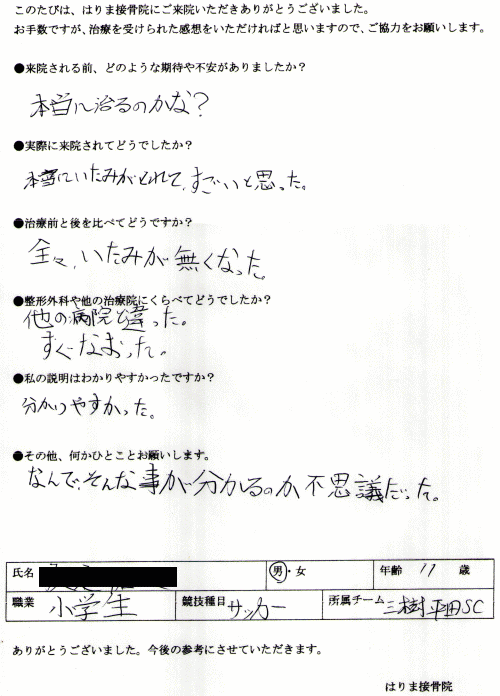 このたびは、はりま接骨院にご来院いただきありがとうございました。
お手数ですが、治療を受けられた感想をいただければと思いますので、ご協力をお願いします。
●来院される前、どのような期待や不安がありましたか？
本当に治るのかな？
●実際に来院されてどうでしたか？
本当にいたみがとれて、すごいと思った。
●治療前と後を比べてどうですか？
全々、いたみが無くなった。
●整形外科や他の治療院にくらべてどうでしたか？
他の病院と違った。
すぐなおった。
●私の説明はわかりやすかったですか？
分かりやすかった。
●その他、何かひとことお願いします。
なんで、そんな事が分かるのか不思議だった。
氏名 男・女 年齢 11 歳
職業 小学生 競技種目 サッカー 所属チーム 三樹平田SC
ありがとうございました。今後の参考にさせていただきます。
はりま接骨院